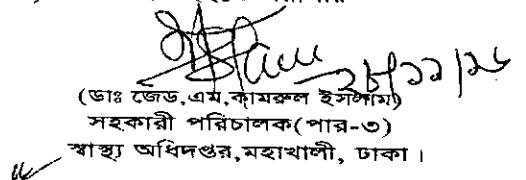 ২৮/১১/২৬
(ডাঃ জেড,এম,কামরুল ইসলাম)
সহকারী পরিচালক(পার-৩)
স্বাস্থ্য অধিদপ্তর,মহাখালী, ঢাকা।